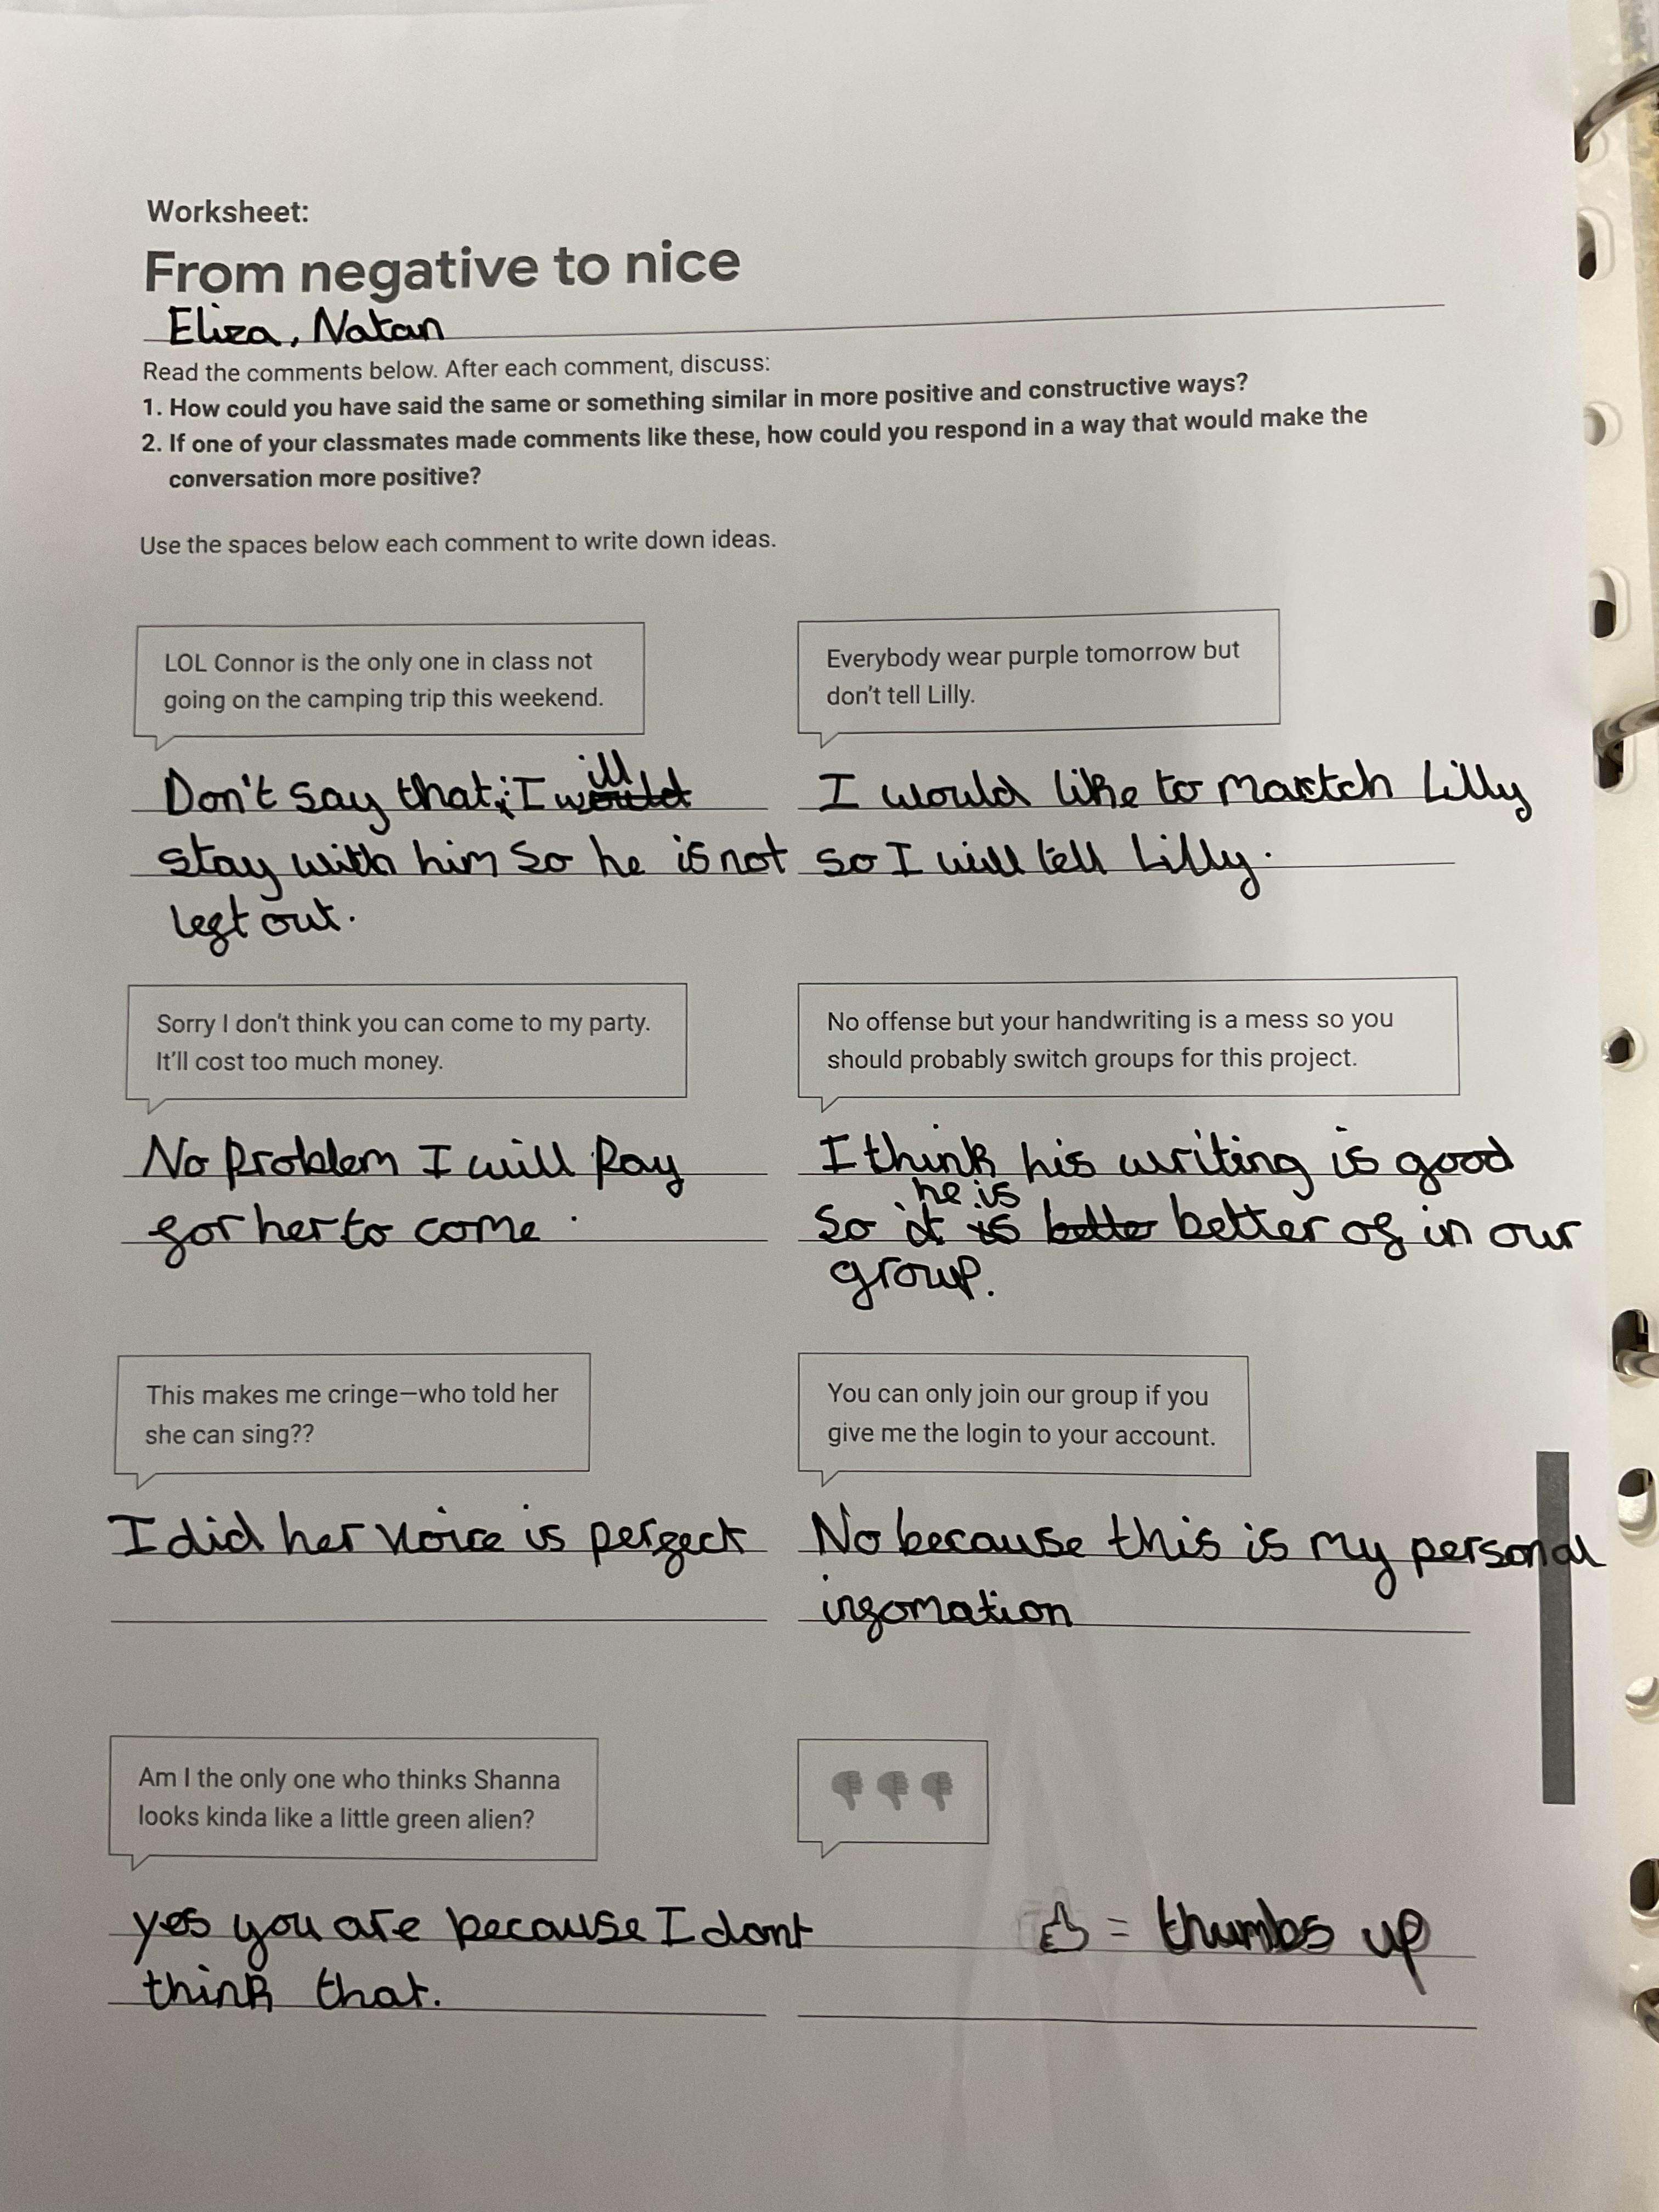 Worksheet:
From negative to nice
Eliza, Natan
Read the comments below. After each comment, discuss:
1. How could you have said the same or something similar in more positive and constructive ways?
2. If one of your classmates made comments like these, how could you respond in a way that would make the
conversation more positive?
Use the spaces below each comment to write down ideas.
LOL Connor is the only one in class not
going on the camping trip this weekend.
Don't say that; I will
stay with him so he is not
left out.
Everybody wear purple tomorrow but
don't tell Lilly.
I would like to mactch Lilly
so I will tell Lilly.
Sorry I don't think you can come to my party.
It'll cost too much money.
No problem I will pay
for her to come.
No offense but your handwriting is a mess so you
should probably switch groups for this project.
I think his writing is good
so he is better of in our
group.
This makes me cringe—who told her
she can sing??
I did her voice is perfect
You can only join our group if you
give me the login to your account.
No because this is my personal
infomation
Am I the only one who thinks Shanna
looks kinda like a little green alien?
yes you are because I dont
think that.
👎👎👎
👍 = thumbs up